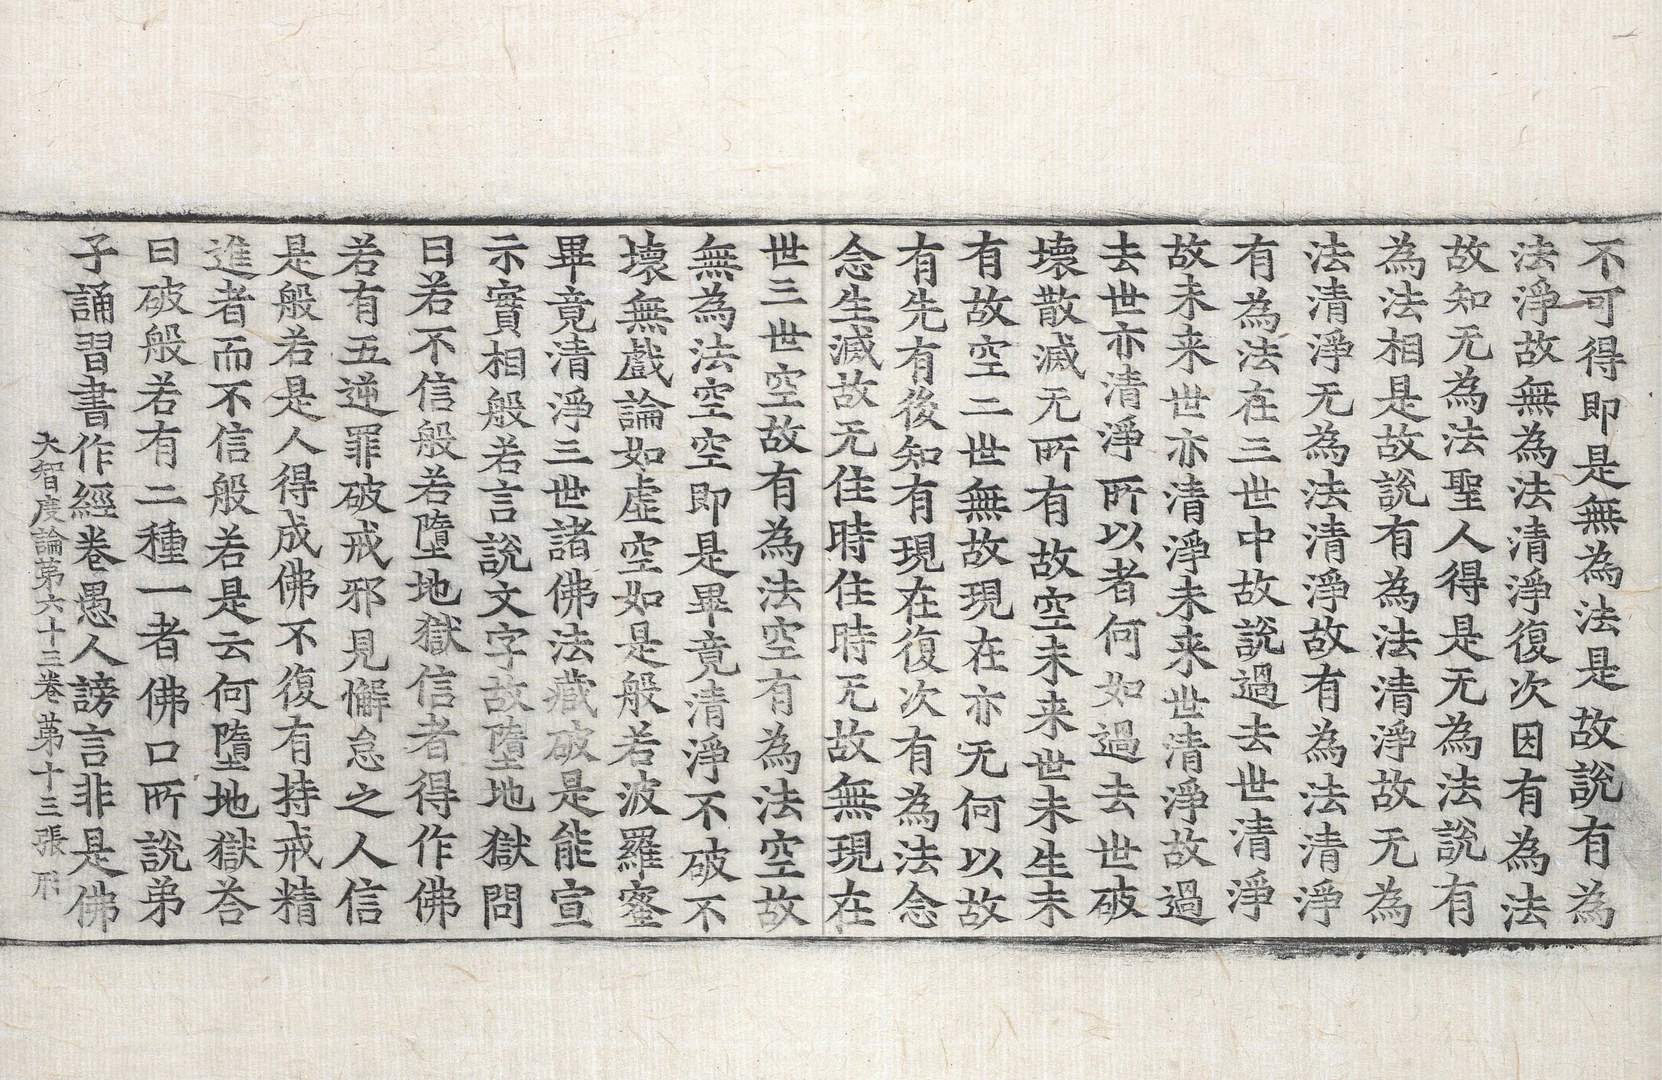 不可得即是無為法是故說有為
法淨故無為法清淨復次因有為法
故知无為法聖人得是无為法說有
為法相是故說有為法清淨故无為
法清淨无為法清淨故有為法清淨
有為法在三世中故說過去世清淨
故未来世亦清淨未来世清淨故過
去世亦清淨所以者何如過去世破
壞散滅无所有故空未来世未生未
有故空二世無故現在亦无何以故
有先有後知有現在復次有為法念
念生滅故无住時住時无故無現在
世三世空故有為法空有為法空故
無為法空空即是畢竟清淨不破不
壞無戲論如虛空如是般若波羅蜜
畢竟清淨三世諸佛法藏破是能宣
示實相般若言說文字故墮地獄問
曰若不信般若墮地獄信者得作佛
若有五逆罪破戒邪見懈怠之人信
是般若是人得成佛不復有持戒精
進者而不信般若是云何墮地獄荅
曰破般若有二種一者佛口所說弟
子誦習書作經卷愚人謗言非是佛
大智度論苐六十三卷 苐十三張 形